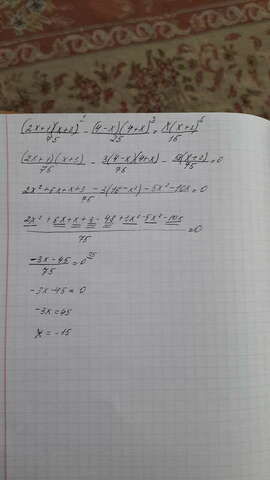 (2x+1)(x+3)/75 - (4-x)(4+x)/25 = x(x+2)/15
(2x+1)(x+3)/75 - 3(4-x)(4+x)/75 - 5x(x+2)/75 = 0
2x²+6x+x+3-3(16-x²)-5x²-10x/75 = 0
2x²+6x+x+3-48+3x²-5x²-10x/75 = 0
-3x-45/75 = 0
-3x-45=0
-3x=45
x=-15